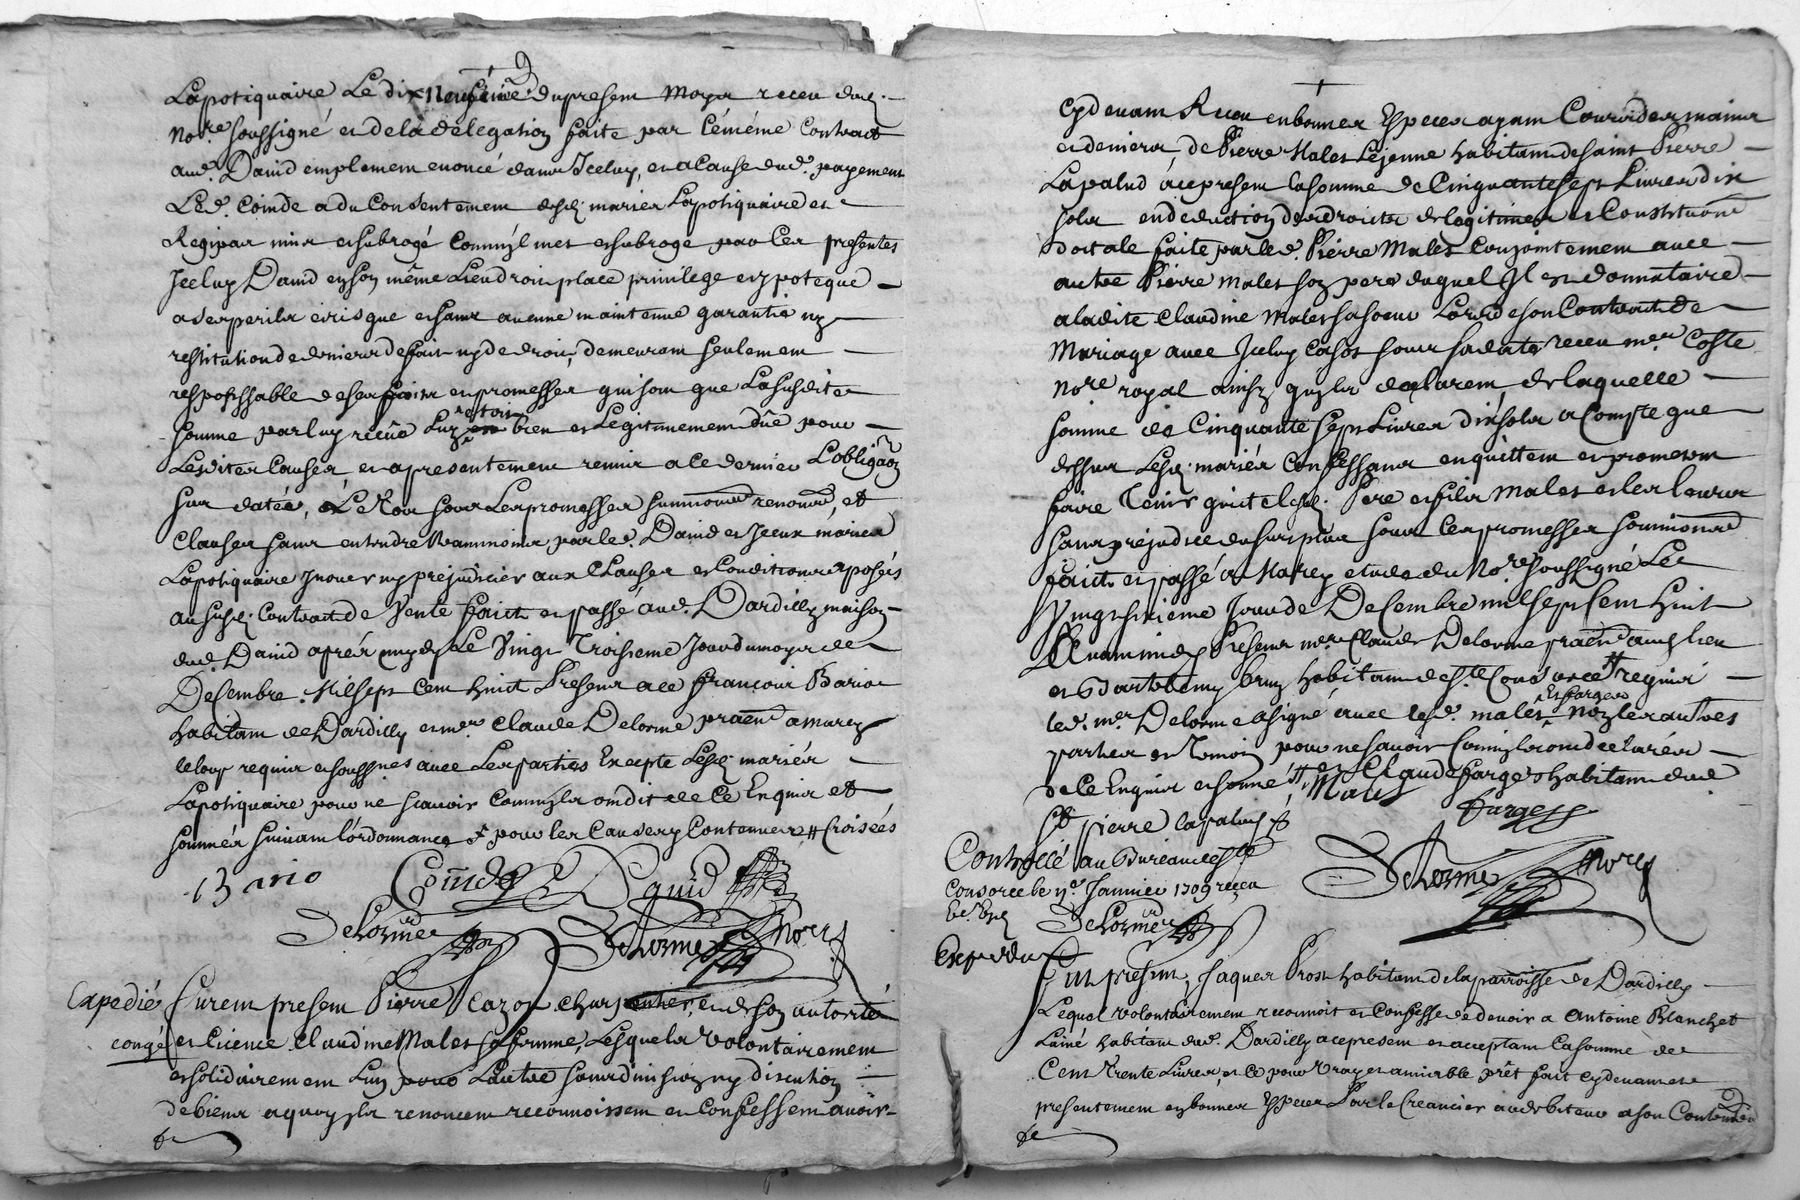 Lapotiquaire Le dix neufième du present Moys receu dud.
No.re soussigné et de la délégation faite par lémême Contract
aud. David emplement enoncé dans Iceluy, et a Cause dud. payement
Led. Coinde a du Consentement desd. mariés Lapotiquaire et
Regipar mis et subrogé Comm'yl met et subroge par les presentes
Iceluy David en son même Lieu droit place privilege et ypoteque
a ses perils et risque et sans aucune maintenue garantie ny
restitution de deniers de fait ny de droit, demeurant seulement
respossable de ses faits et promesses qui sont que La susdite
somme par luy recüe Luy estoit bien et Légitimement düe pour
Lesdites Causes et a presentement remis a ce dernier L'obligãon
sus datée, Le Tout sous Les promesses submissions renons, et
Clauses sans entendre Neanmoins par led. David et Iceux mariés
Lapotiquaire Inover ny prejudicier aux Clauses et Conditions aposées
au susd. Contract de Vente faict et passé aud. Dardilly maison
dud. David aprés midy Le Vingt Troisieme Jour du moys de
Decembre Mil sept Cent huict Presens a ce françois Barion
habitant de Dardilly et m.re Claude Delorme praën a marcy
le loup requis et soussignés avec Les parties Excepte Lesd. mariés
Lapotiquaire pour ne scavoir Comm'yls ont dit de Ce Enquis et
sommés suivant l'ordonnance et pour les Causes y Contenues # Croisées
13 avio Coindo David
Delorme Delorme No.re
Expedié furent presens Pierre Cazot Charpentier, et de son autorité
congé et licence Claudine Males sa femme, Lesquels Volontairement
et solidairement L'un pour L'autre sans division ny discution
de biens a quoy yls renoncent reconnoissent et Confessent avoir
cy devant Receu en bonnes Especes ayant Cours des mains
et deniers, de Pierre Males Le jeune habitant de saint Pierre
Lapalud a ce present la somme de Cinquante sept Livres dix
sols en deduction des droicts de legitimes et Constitution
dottale faite par led. Pierre Males Conjointement avec
autre Pierre Males son pere duquel Il est donnataire
a ladite Claudine Males sa soeur Lors de son Contract de
Mariage avec Iceluy Casot sous sa date receu m.re Coste
No.re royal ainsy qu'yls declarent, de laquelle
somme de Cinquante sept Livres dix sols a Compte que
dessus Lesd. mariés Confessans en quittent et promettent
faire Tenir quitte lesd. Pere et fils Males et les leurs
sans prejudice du surplus sous les promesses soumissions
faict et passé a Marcy etude du No.re soussigné Le
Vingt sixieme Jour de Decembre mil sept Cent huit
avant midy Presens m.re Claude Delorme praën aud. lieu
et Bartelemy habitant de s.te Consorce requis
led. m.re Delorme a signé avec led. males et farges non les autres
parties et Temoin pour ne scavoir Comm'yls ont declarés
de Ce Enquis et sommé # et Claude farges habitant dud.
st pierre lapalud Males farges
Controllé au Bureau de ste
Consorce le 11.e Janvier 1709 receu
Delorme Delorme No.re
Expedié fut present, Jaques Prost habitant de la parroisse de Dardilly
Lequel volontairement reconnoit et Confesse de devoir a Antoine Blanchet
L'ainé habitant dud. Dardilly a ce present et acceptant la somme de
Cent Trente Livres, et ce pour vray et amiable prêt fait cy devant et
presentement en bonnes Especes Par le Creancier au debiteur a son Contentem